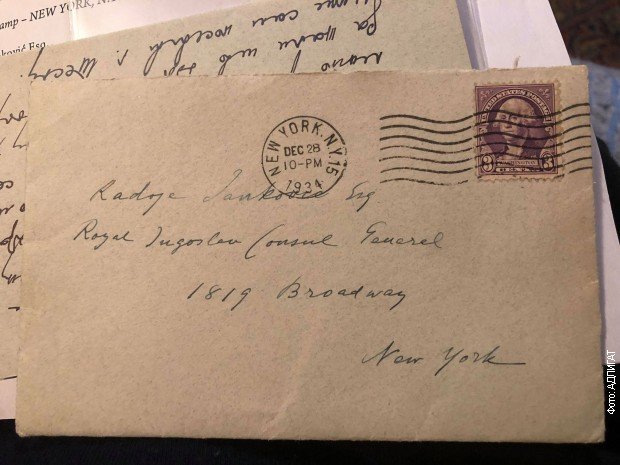 amp – NEW YORK, N.
ković Esq
NEW YORK, N.Y. 15
DEC 28
10-PM
1934
UNITED STATES POSTAGE
3 WASHINGTON 3
Radoje Jankovic Esq
Royal Jugoslav Consul General
1819 Broadway
New York
Фото: АДЛИГАТ